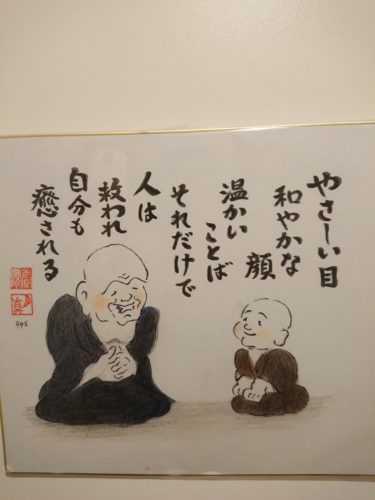 やさしい目
和やかな
顔
温かい
ことば
それだけで
人は
救われ
自分も
癒される